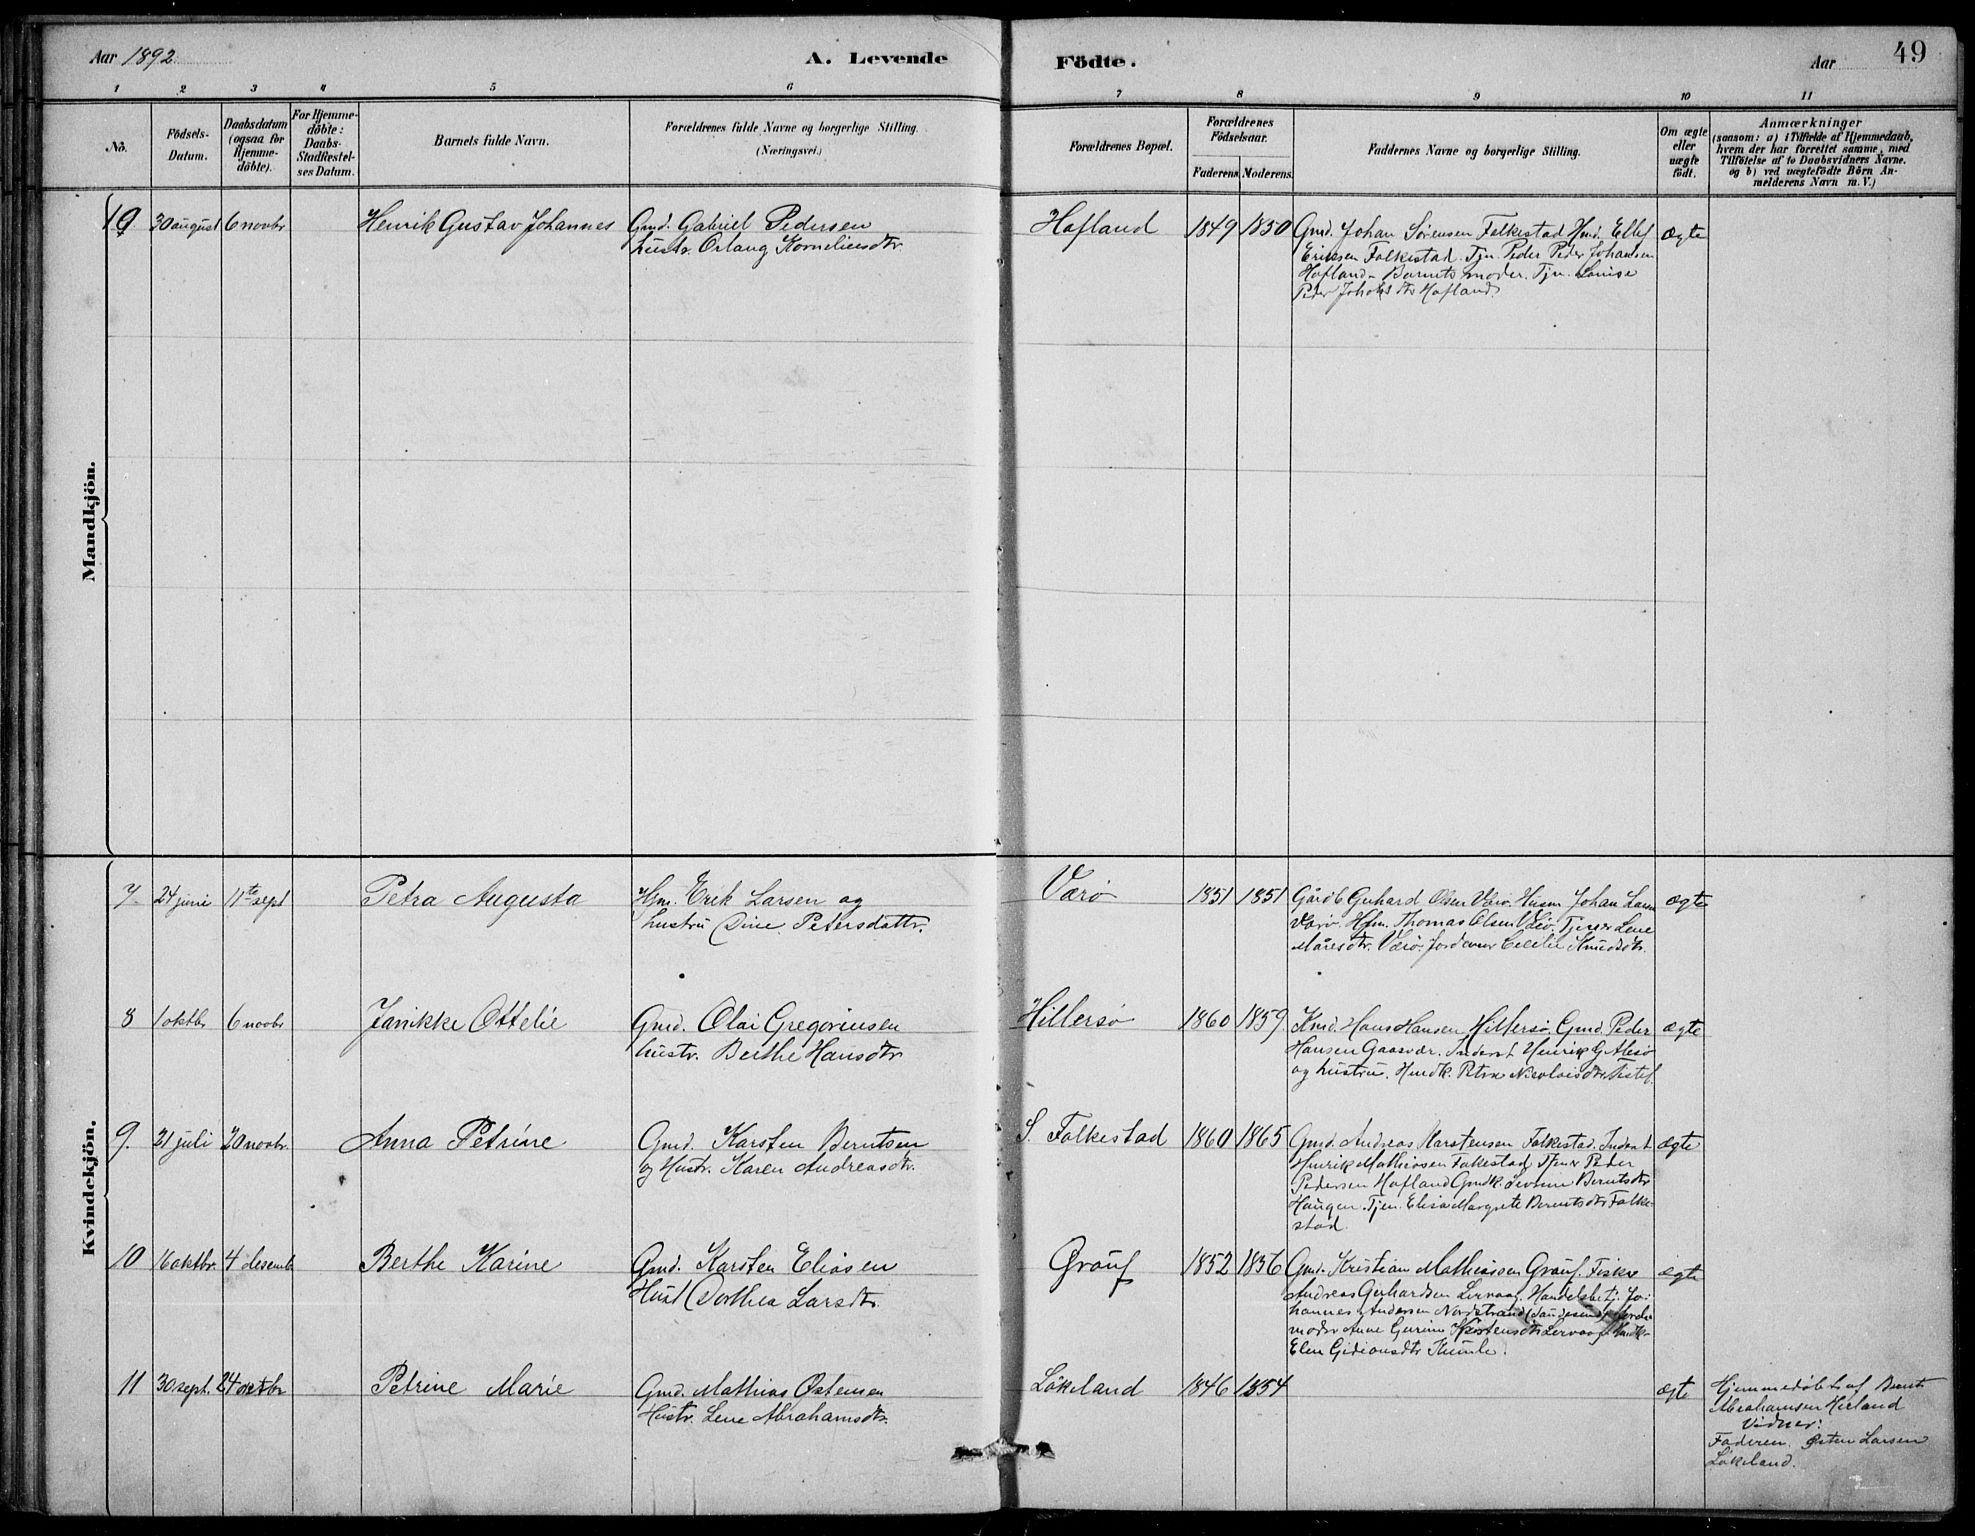 Aar 1892
A. Levende
Födte.
Aar
49
1 2 3 4 5 6 7 8 9 10 11
No.
Födsels-
Datum.
Daabsdatum
(ogsaa for
Hjemme-
döbte).
For Hjemme-
döbte:
Daabs-
Stadfæstel-
ses Datum.
Barnets fulde Navn.
Forældrenes fulde Navne og borgerlige Stilling.
(Næringsvei.)
Forældrenes Bopæl.
Forældrenes
Födselsaar.
Faderens. Moderens.
Faddernes Navne og borgerlige Stilling.
Om ægte
eller
uægte
födt.
Anmærkninger
(saasom: a) i Tilfælde af Hjemmedaab,
hvem der har forrettet samme, med
Tilföielse af to Daabsvidners Navne.
og b) ved uægtefödte Börn An-
melderens Navn m. V.)
Mandkjön.
19 30 august 6 novbr Henrik Gustav Johannes Gmd. Gabriel Pedersen Hofland 1849 1850 Gmd. Johan Sörensen Falkestad Hmd. Ellef ægte
hustr. Orlaug Korneliusdtr.
Ericksen Falkestad. Tjn. Peder Peder Johansen
Hofland - Barnets moder. Tjn. Louise
Peder Hofland.
Kvindekjön.
7 24 juni 11te sept Petra Augusta Hm. Erik Larsen og Værö 1851 1851 Gårdb Gerhard Olsen Værö. Husm Johan Larsen ægte
hustru Dine Petersdattr.
Værö. Hsm. Thomas Olsen Værö. Tjener Lene
Måresdtr. Værö. Jordemor Cecilie Knudsdtr.
8 1 oktbr 6 novbr Janikke Ottelie Gmd. Olai Gregoriusen Hillersö 1860 1859 Kmd. Hans Hansen Hillersö. Gmd. Peder ægte
hustr. Berthe Hansdtr
Hansen Gaasvær. Inderst Henrik G Alesö
og hustru. Petra Nicolaisdtr
9. 21 juli 20 novbr. Anna Petrine Gmd. Karsten Berntsen S. Falkestad 1860 1865 Gmd. Andreas Karstensen Falkestad. Inderst ægte
og Hustr. Karen Andreasdtr.
Henrik Mathiasen Falkestad Tjener Peder
Pedersen Hofland Gmdk. Berntsdtr
Haugen. Tjen. Elisa Margrete Berntsdtr Falke-
stad.
10 16 oktbr. 4 desemb Berthe Karine Gmd. Karsten Eliasen Grauf 1852 1856 Gmd. Kristian Mathiasen Grauf. Fisker ægte
Hust Dorthea Larsdtr.
Andreas Gerhardsen Lervaag. Handelsbetj. Jo-
hannes Andersen Nordstrand Jorde
moder Ane Gurine Lervaag
Elen Gideonsdtr Kumle.
11 30 sept. 24 oktbr Petrine Marie Gmd. Mathias Østensen Lökeland 1846 1854 ægte Hjemmedöbt af Bernt
Hustr. Lene Abrahamsdtr.
Abrahamsen Herland
Vidner:
Faderen. Østen Larsen
Lökeland.